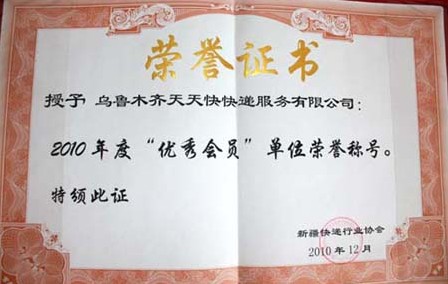 荣誉证书
授予 乌鲁木齐天天快快递服务有限公司：
2010年度“优秀会员”单位荣誉称号。
特颁此证
新疆快递行业协会
2010年12月